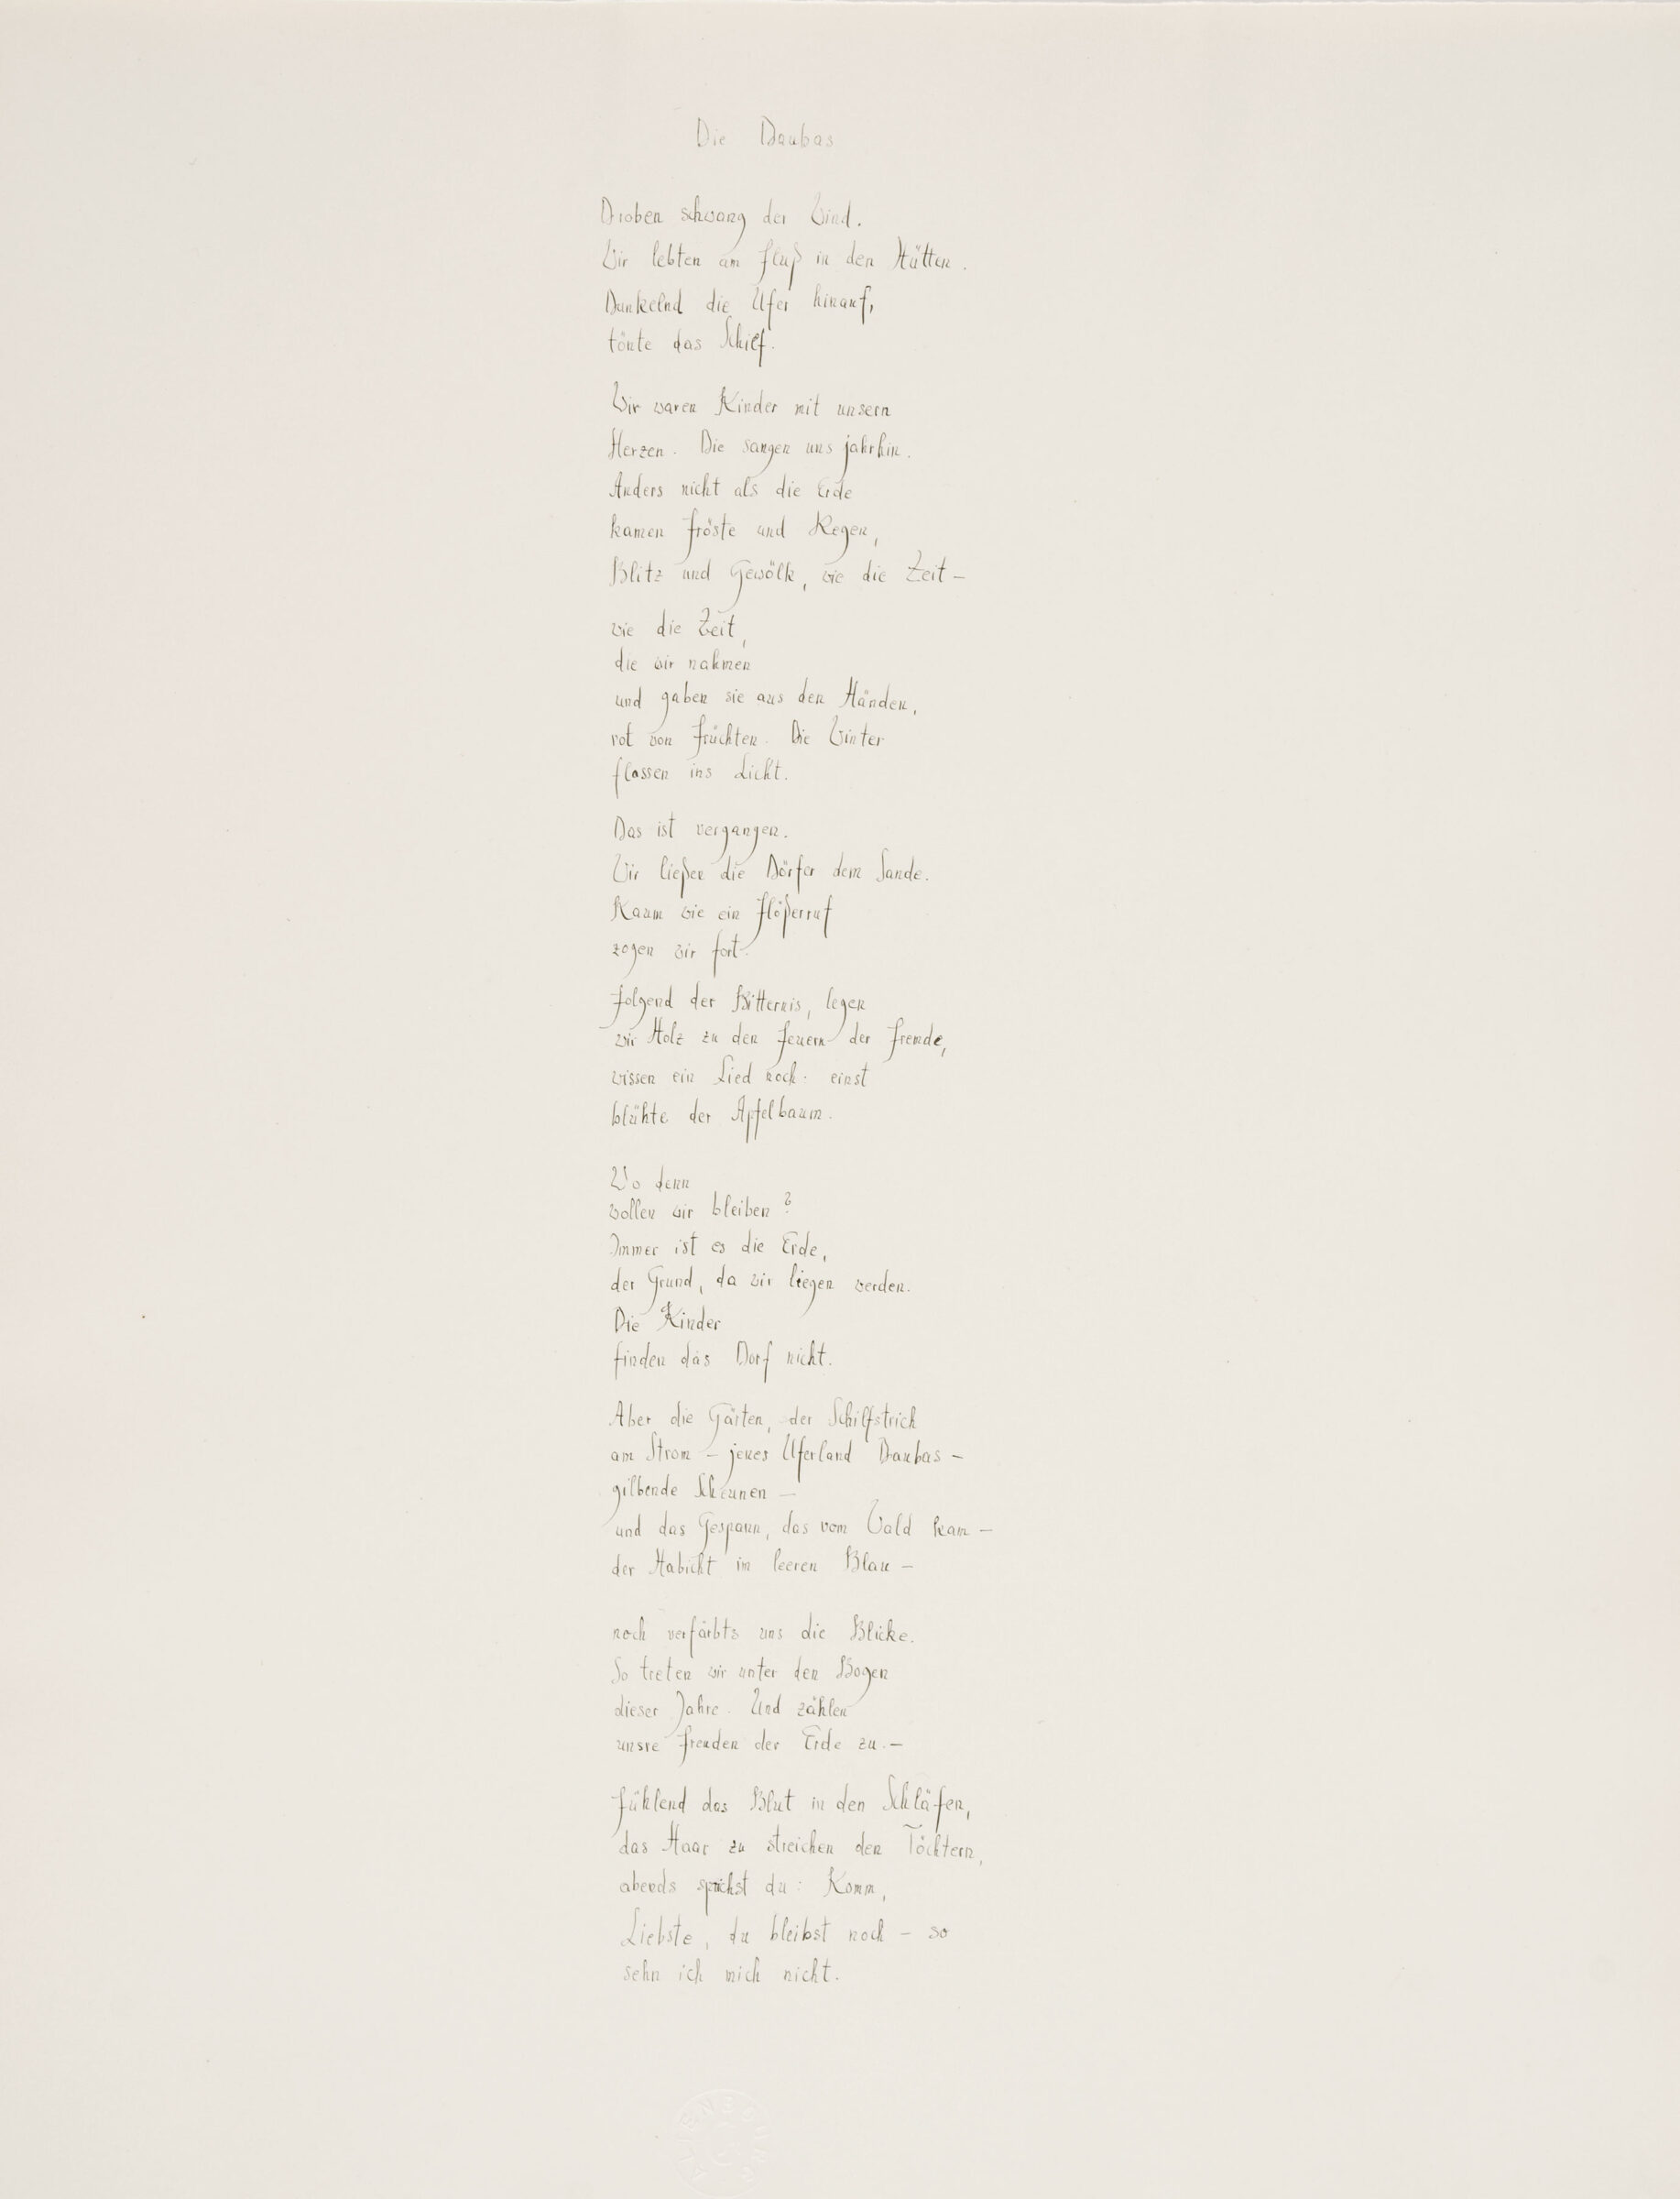 Die Daubas
Droben schwang der Wind.
Wir lebten am Fluß in den Hütten.
Dunkelnd die Ufer hinauf,
tönte das Schilf.
Wir waren Kinder mit unsern
Herzen. Die sangen uns jahrhin.
Anders nicht als die Erde
kamen Fröste und Regen,
Blitz und Gewölk, wie die Zeit –
wie die Zeit,
die wir nahmen
und gaben sie aus den Händen,
rot von Früchten. Die Winter
flossen ins Licht.
Das ist vergangen.
Wir ließen die Dörfer dem Sande.
Kaum wie ein Flößerruf
zogen wir fort.
Folgend der Bitternis, legen
wir Holz zu den Feuern der Fremde,
wissen ein Lied noch: einst
blühte der Apfelbaum.
Wo denn
wollen wir bleiben?
Immer ist es die Erde,
der Grund, da wir liegen werden.
Die Kinder
finden das Dorf nicht.
Aber die Gärten, der Schilfstrich
am Strom – jenes Uferland Daubas –
gilbende Scheunen –
und das Gespann, das vom Wald kam –
der Habicht im leeren Blau –
noch verfärbts uns die Blicke.
So treten wir unter den Bogen
dieser Jahre. Und zählen
unsre Freuden der Erde zu. –
Fühlend das Blut in den Schläfen,
das Haar zu streichen den Töchtern,
abends sprichst du: Komm,
Liebste, du bleibst noch – so
sehn ich mich nicht.